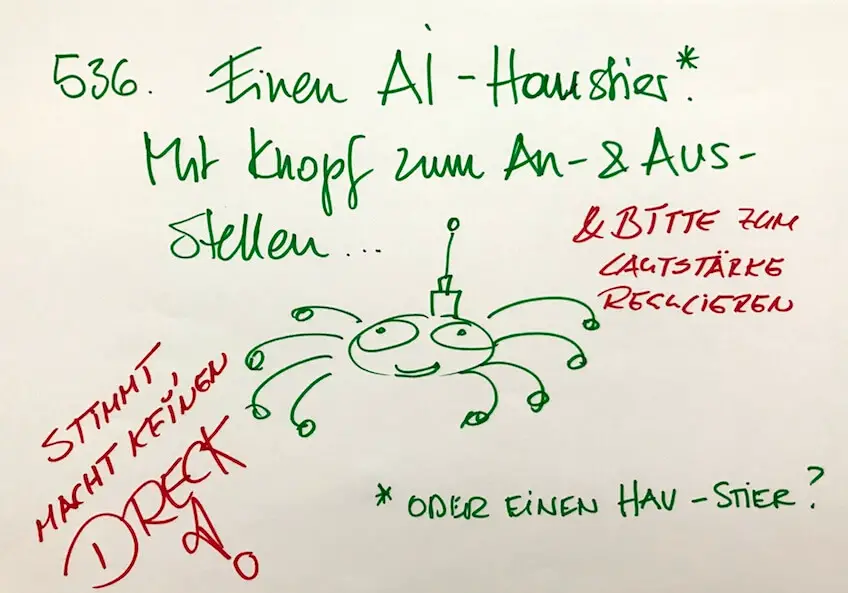 536. Einen AI-Haustier*.
Mit Knopf zum An- & Aus-
stellen...
& BITTE ZUM
LAUTSTÄRKE
REGULIEREN
STIMMT,
MACHT KEINEN
DRECK!
* ODER EINEN HAU-STIER?